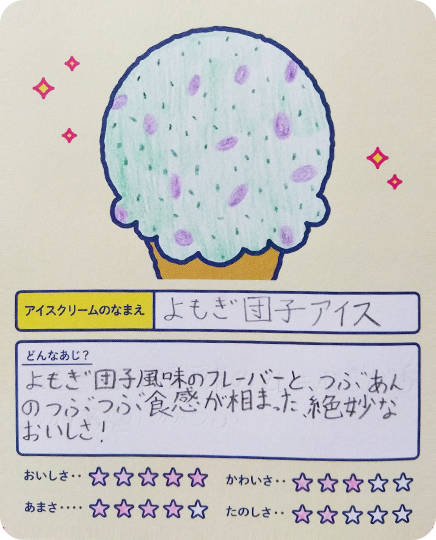 アイスクリームのなまえ よもぎ団子アイス
どんなあじ?
よもぎ団子風味のフレーバーと、つぶあん
のつぶつぶ食感が相まった、絶妙な
おいしさ!
おいしさ‥ ★★★★★ かわいさ‥ ★★★☆☆
あまさ‥‥ ★★★★☆ たのしさ‥ ★★☆☆☆